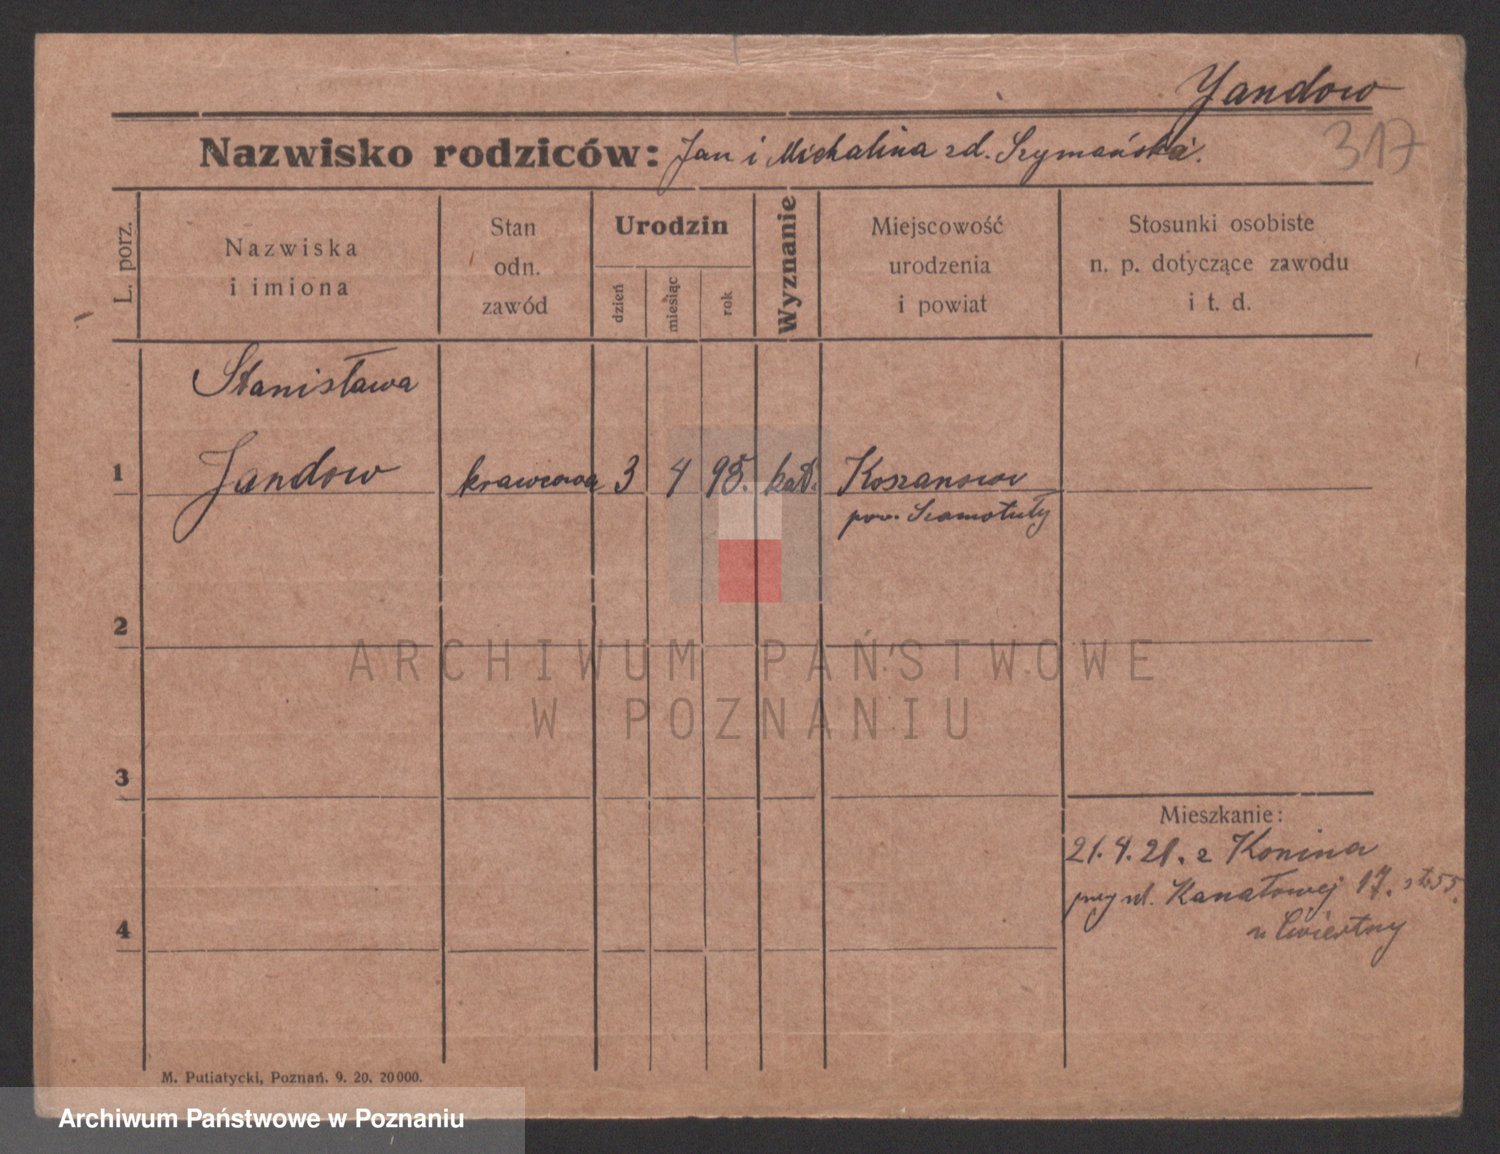 Jandow
317
Nazwisko rodziców: Jan i Michalina zd. Szymańska.
L. porz.
Nazwiska
i imiona
Stan
odn.
zawód
Urodzin
dzień
miesiąc
rok
Wyznanie
Miejscowość
urodzenia
i powiat
Stosunki osobiste
n. p. dotyczące zawodu
i t. d.
Stanisława
1 Jandow krawcowa 3 4 98. kat. Koszanowo
pow. Szamotuły
2
ARCHIWUM PAŃSTWOWE
W POZNANIU
3
Mieszkanie:
21.4.21. z Konina
przy ul. Kanałowej 17.
4 u Ćwiertny
M. Putiatycki, Poznań. 9. 20. 20 000.
Archiwum Państwowe w Poznaniu